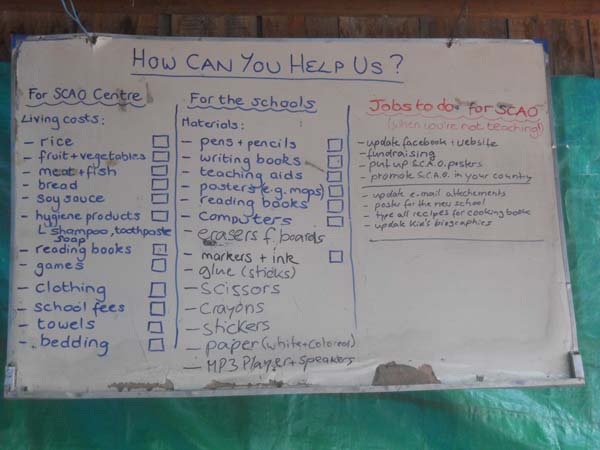 HOW CAN YOU HELP US?
For SCAO Centre
Living costs:
- rice
- fruit + vegetables
- meat + fish
- bread
- soy sauce
- hygiene products
L shampoo, toothpaste
soap
- reading books
- games
- clothing
- school fees
- towels
- bedding
For the schools
Materials:
- pens + pencils
- writing books
- teaching aids
- posters (e.g. maps)
- reading books
- computers
- erasers f. boards
- markers + ink
- glue (sticks)
- scissors
- crayons
- stickers
- paper (white + colored)
- MP3 Player + speakers
Jobs to do for SCAO
(when you're not teaching!)
- update facebook + website
- fundraising
- put up S.C.A.O. posters
- promote S.C.A.O. in your country
- update e-mail attachements
- poster for the new school
- type all recipes for cooking book
- update kid's biographies